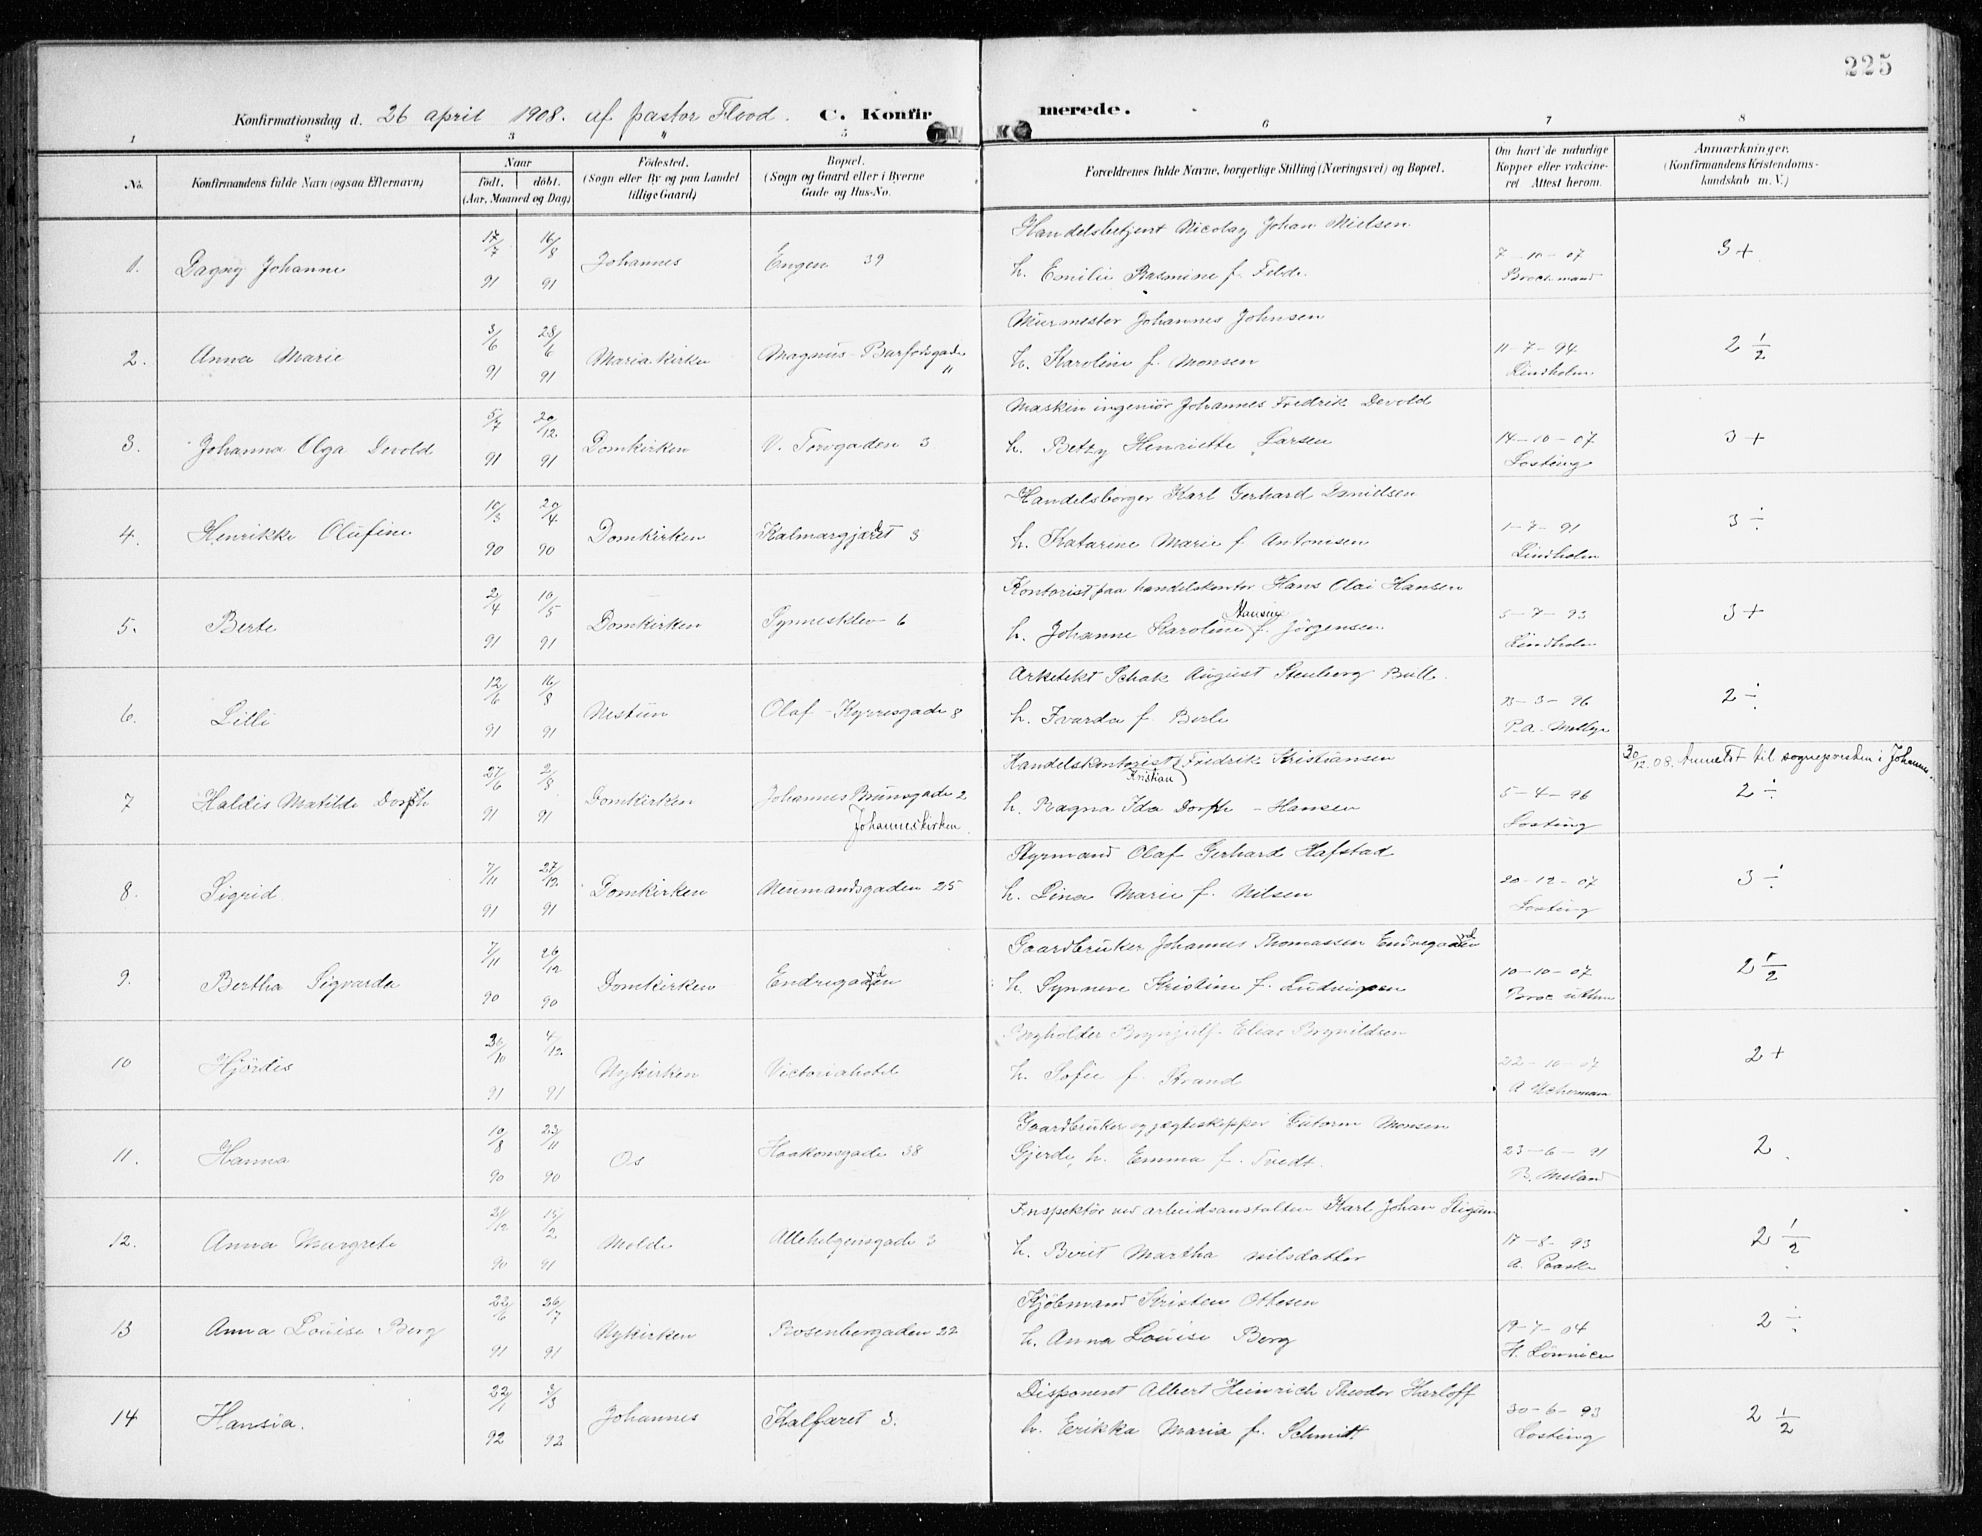 225
Konfirmationsdag d. 26 april 1908. af pastor Flood. C. Konfirmerede.
1 2 3 4 5 6 7 8
No. Konfirmandens fulde Navn (ogsaa Efternavn) Naar født. døbt. (Aar, Maaned og Dag) Fødested. (Sogn eller By og paa Landet tillige Gaard) Bopæl. (Sogn og Gaard eller i Byerne Gade og Hus-No. Forældrenes fulde Navne, borgerlige Stilling (Næringsvei) og Bopæl. Om havt de naturlige Kopper eller vakcineret Attest herom. Anmærkninger. (Konfirmandens Kristendomskundskab m. V.)
1. Dagny Johanne 17/7 91 16/8 91 Johannes Engen 39 Handelsbetjent Nicolay Johan Nielsen
h. Emilie Rasmine f. Felde. 7-10-07 Brochmand 3+
2. Anna Marie 3/6 91 28/6 91 Mariakirken Magnus-Barfodsgade 11 Murmester Johannes Johnsen
h. Karoline f. Monsen 11-7-94 Lindholm 2 1/2
3. Johanna Olga Devold 5/7 91 20/12 91 Domkirken V. Torvgaden 3 Maskiningeniør Johannes Fredrik Devold
h. Betzy Henriette Larsen 14-10-07 Losting 3+
4. Henrikke Olufine 10/3 90 20/4 90 Domkirken Kalmargjerdet 3 Handelsborger Karl Gerhard Danielsen
h. Katarine Marie f. Antonesen 1-7-91 Lindholm 3 ÷
5. Berte 2/4 91 10/5 91 Domkirken Synnesklev 6 Kontorist paa handelskontor Hans Olai Hansen
h. Johanne Karoline Hansine f. Jörgensen. 5-7-93 Lindholm 3+
6. Lilli 12/6 91 16/8 91 Nestün Olaf-Kyrresgade 8 Arkitekt Schak August Stenberg Bull.
h. Ivarda f. Berle -3-96 P.A. 2 ÷
7 Haldis Matilde Dorph 27/6 91 2/8 91 Domkirken Johannes Brunsgade 2 Johanneskirken. Handelskontorist Fredrik Kristian Kristiansen
h. Ragna Ida Dorph-Hansen 5-4-96 Losting 30/12.08. Anmeldt til sognepresten i Johannes. 2 ÷
8. Sigrid. 7/11 91 27/12 91 Domkirken Neumandsgaden 25 Styrmand Olaf Gerhard Hafstad
h. Lina Marie f. Nilsen 20-12-07 Losting 3 ÷
9. Bertha Sigvarda 7/11 90 26/12 90 Domkirken Endregaarden Gaardbruker Johannes Thomassen Endregaarden
h. Synneve Kristine f. Ludvigsen 10-10-07 2 1/2
10 Hjördis 30/10 91 4/12 91 Nykirken Victoriahotel Bogholder Brynjulf Elias Brynildsen
h. Sofie f. Strand 22-10-07 2+
11. Hanna 10/8 90 23/11 90 Os Haakonsgade 38 Gaardbruker og jægteskipper Gutorm Monsen
Gjerde, h. Emma f. Tvedt. 23-6-91 B. Meland 2.
12. Anna Margrete 21/12 90 15/2 91 Molde Allehelgensgade 3 Inspektör ved arbeidsanstalten Karl Johan
h. Berit Martha Nilsdatter 17-8-93 A. Paaske 2 1/2
13 Anna Louise Berg 22/6 91 26/7 91 Nykirken Rosenbergaden 22 Kjöbmand Kristen Ottesen
h. Anna Louise Berg 19-7-04 H. 2 ÷
14 Hansia. 22/1 92 3/3 92 Johannes Kalfaret 3. Disponent Albert Heinrich Theodor Karloff
h. Erikka Maria f. Schmidt. 30-6-93 Losting 2 1/2